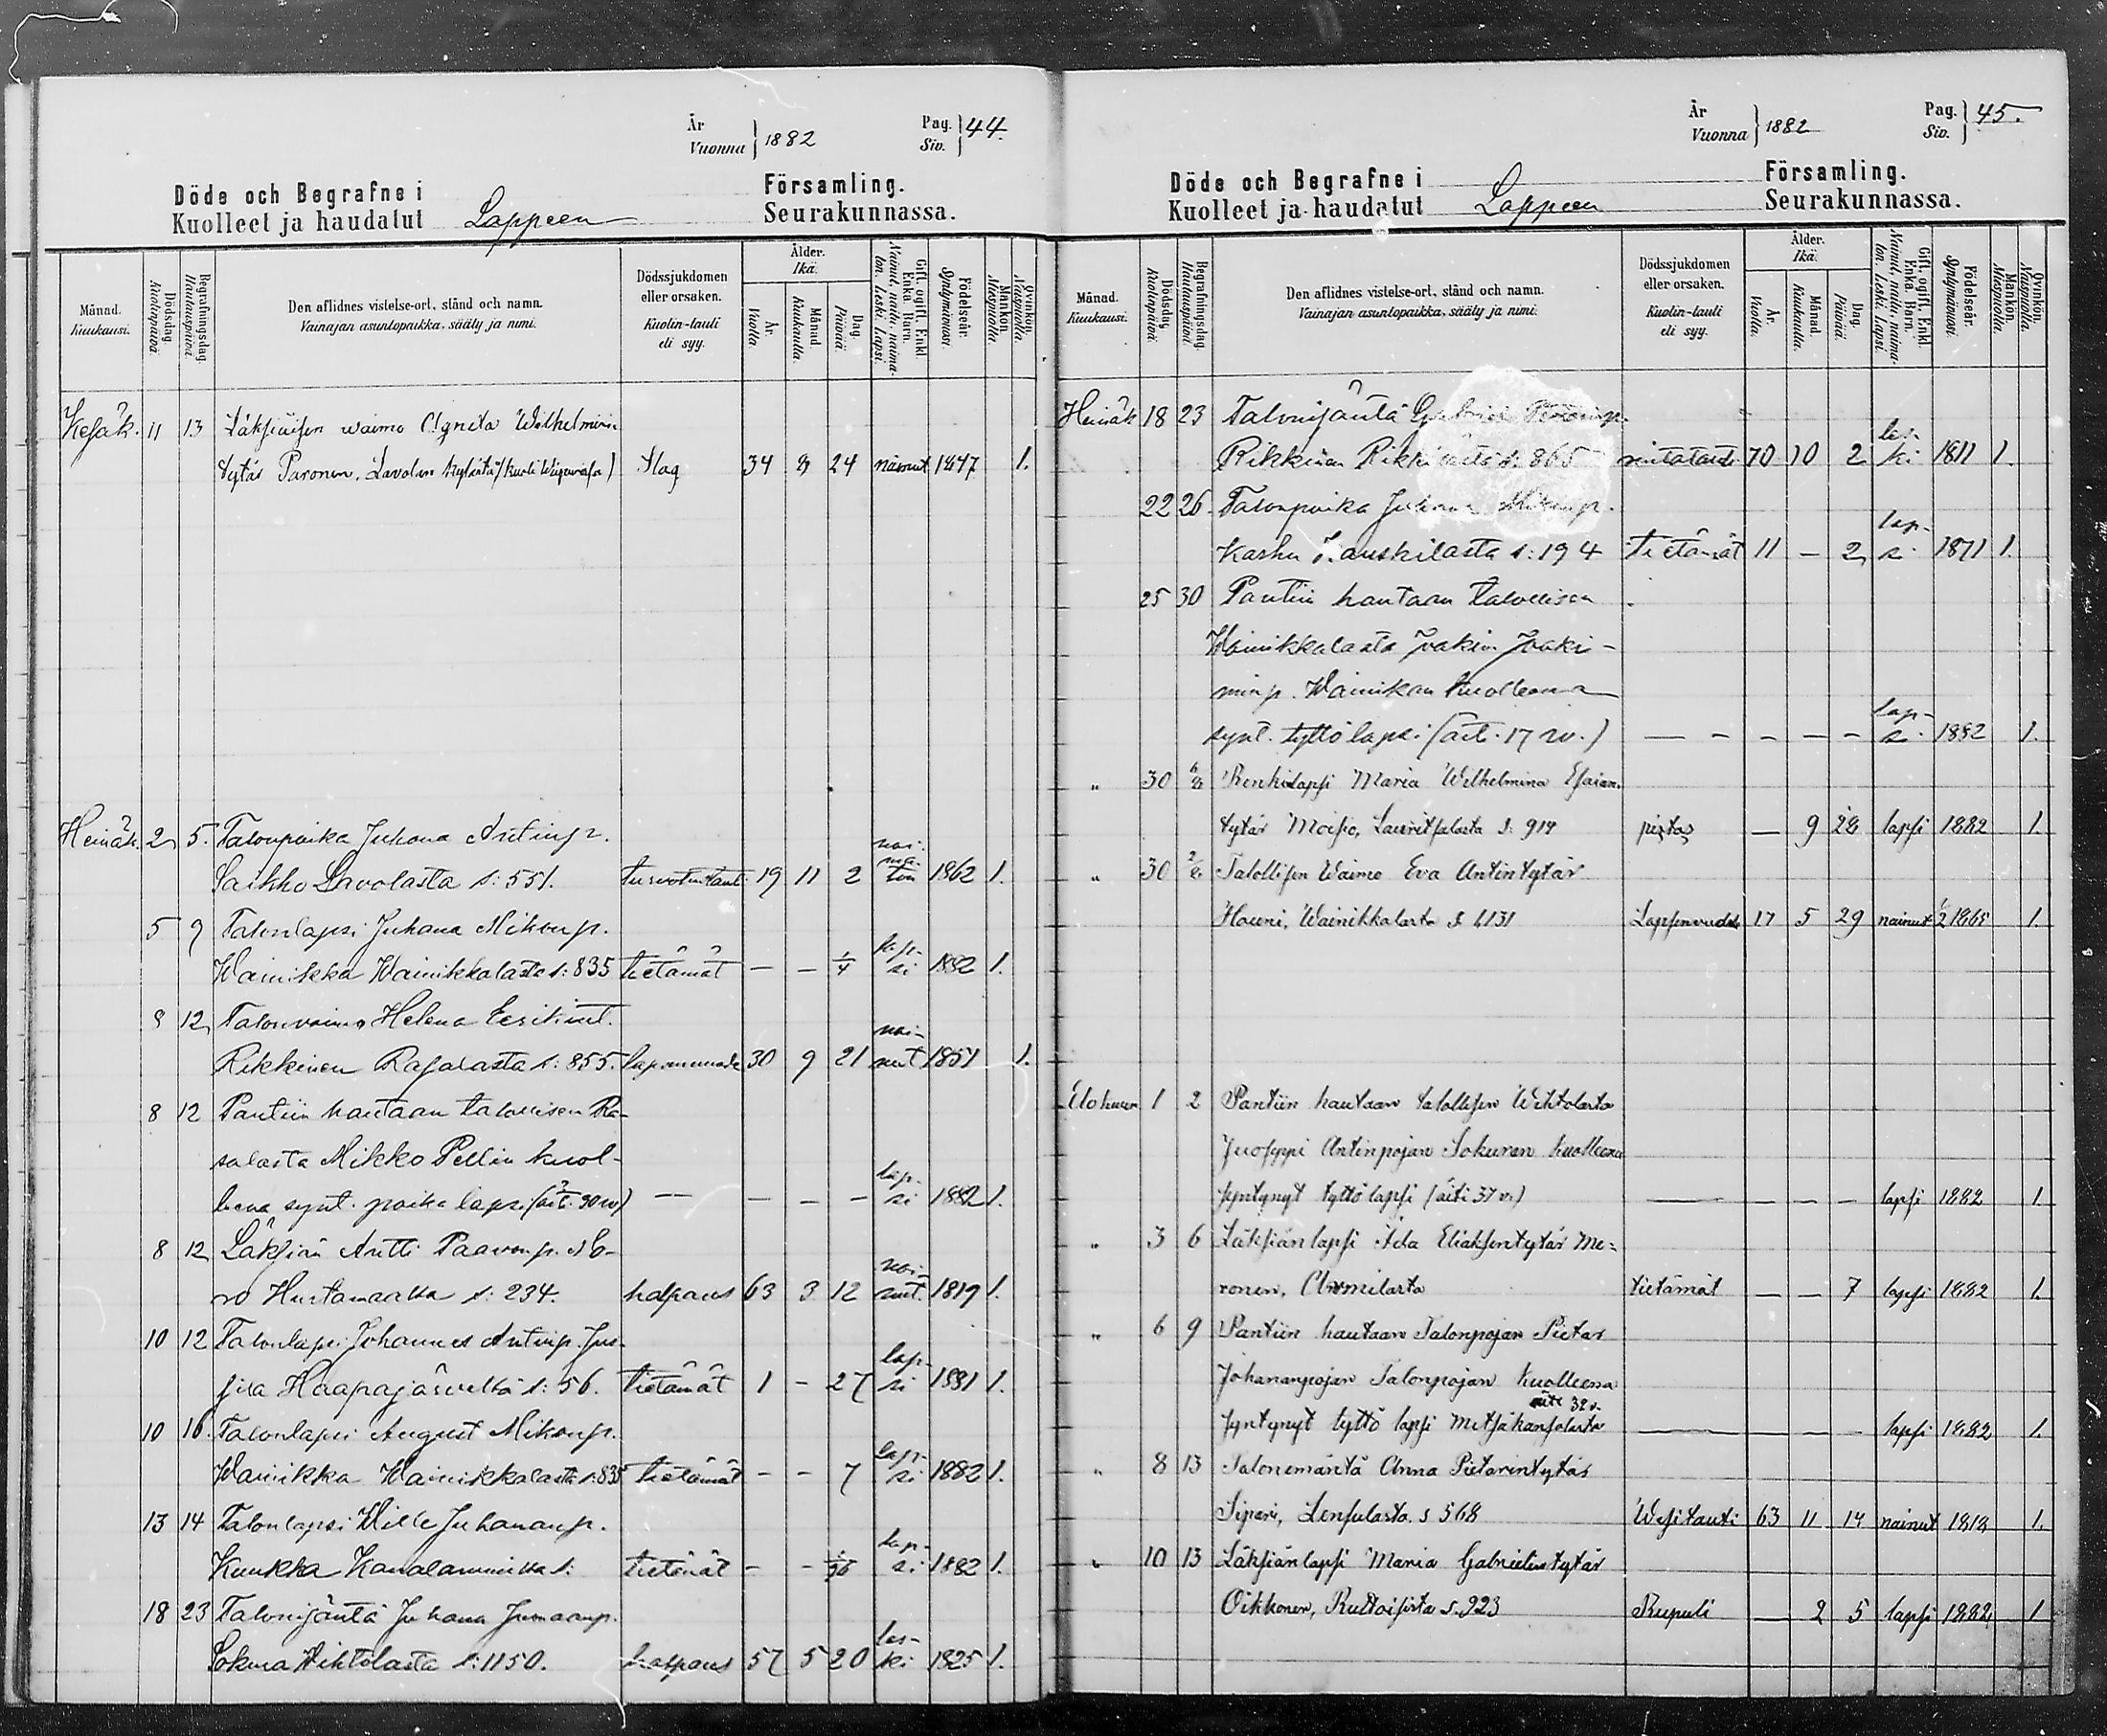 År
Vuonna } 1882
Pag.
Siv. } 44.
Döde och Begrafne i
Kuolleet ja haudatut Lappeen
Församling.
Seurakunnassa.
Månad.
Kuukausi.
Dödsdag.
Kuolinpäivä.
Begrafningsdag.
Hautauspäivä.
Den aflidnes vistelse-ort, stånd och namn.
Vainajan asuntopaikka, sääty ja nimi.
Dödssjukdomen
eller orsaken.
Kuolin-tauti
eli syy.
Ålder.
Ikä.
År.
Vuotta.
Månad.
Kuukautta.
Dag.
Päivää.
Gift, ogift, Enkl.
Enka, Barn.
Nainut, naitu, naima-
ton, Leski, Lapsi.
Födelseår.
Syntymävuosi.
Mankön.
Miespuolia.
Qvinkön.
Naispuolia.
Kesäk. 11 13 Läksiäisen waimo Agneta Wilhelmiin
tytär Paronen, Lavolan kylästä (kuoli Wiipurissa) Slag 34 8 24 nainut 1847 1.
Heinäk. 2 5. Talonpoika Juhana Antinp.
Saikko Lavolasta s: 551. 19 11 2 nai-
ma-
ton 1862 1.
5 9 Talonlapsi Juhana Mikonp.
Wainikka Wainikkalasta s: 835 tietämät — — 1/4 lap-
si 1882 1.
8 12 Talonvaimo Helena Eerikint.
Rikkinen Rasalasta s: 855. lapsenvuode 30 9 21 nai-
nut 1851 1.
8 12 Pantiin hautaan talollisen Ra-
salasta Mikko Pellin kuol-
leena synt. poika lapsi (äiti 30 w) — — — — lap-
si 1882 1.
8 12 Läksiän Antti Paavonp. No-
ro Hurtanmaalta s: 234. halpaus 63 3 12 nai-
nut. 1819 1.
10 12 Talonlapsi Johannes Antinp. Jus-
sila Haapajärveltä s: 56. tietämät 1 – 27 lap-
si 1881 1.
10 16. Talonlapsi August Mikonp.
Wainikka Wainikkalasta s: 835 tietämät – – 7 lap-
si 1882 1.
13 14 Talonlapsi Wille Juhananp.
Kuukka s: tietämät – – lap-
si 1882 1.
18 23 Talonisäntä Juhana
Sokura Wihtolasta s: 1150. halpaus 57 5 20 les-
ki 1825 1.
År
Vuonna } 1882
Pag.
Siv. } 45.
Döde och Begrafne i
Kuolleet ja haudatut Lappeen
Församling.
Seurakunnassa.
Månad.
Kuukausi.
Dödsdag.
Kuolinpäivä.
Begrafningsdag.
Hautauspäivä.
Den aflidnes vistelse-ort, stånd och namn.
Vainajan asuntopaikka, sääty ja nimi.
Dödssjukdomen
eller orsaken.
Kuolin-tauti
eli syy.
Ålder.
Ikä.
År.
Vuotta.
Månad.
Kuukautta.
Dag.
Päivää.
Gift, ogift, Enkl.
Enka, Barn.
Nainut, naitu, naima-
ton, Leski, Lapsi.
Födelseår.
Syntymävuosi.
Mankön.
Miespuolia.
Qvinkön.
Naispuolia.
Heinäk 18 23 Talonisäntä
Rikkinen s: 865 rintatauti 70 10 2 les-
ki 1811 1.
22 26. Talonpoika Juhana Mikonp.
Karhu s: 194 tietämät 11 – 2 lap-
si 1871 1.
25 30 Pantiin hautaan talollisen
Wainikkalasta Joakim Joaki-
minp. Wainikan kuolleena
synt. tyttö lapsi (äiti 17 w.) — – – – – lap-
si 1882 1.
„ 30 6/8 Renkilapsi Maria Wilhelmina Esaian-
tytär Moisio, Lauritsalasta s: 919 pistos — 9 28 lapsi 1882 1.
„ 30 2/8 Talollisen Waimo Eva Antintytär
Hauni, Wainikkalasta s 1131 Lapsenvuode 17 5 29 nainut 1865 1.
Elokuun 1 2 Pantiin hautaan talollisen Wihtolasta
Juoseppi Antinpojan Sokuran kuolleena
syntynyt tyttö lapsi (äiti 37 v.) — — — — lapsi 1882 1
„ 3 6 Läksiän lapsi Ida Eliaksentytär Mo-
ronen, tietämät — — 7 lapsi 1882 1.
„ 6 9 Pantiin hautaan Talonpojan Pietar
Johananpojan Talonpojan kuolleena
äiti 32 v.
syntynyt tyttö lapsi Metsäkansolasta — — — – lapsi 1882 1.
„ 8 13 Talonemäntä Anna Pietarintytär
Sipari, s 568 Wesitauti 63 11 14 nainut 1818 1.
„ 10 13 Läksiän lapsi Maria Gabrielintytär
Oikkonen, Ruttoisista s. 923 Rupuli — 2 5 lapsi 1882 1